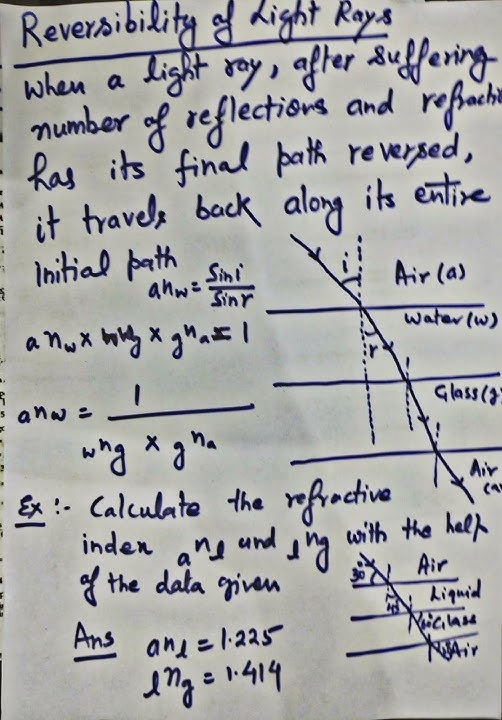 Reversibility of Light Rays
When a light ray, after suffering
number of reflections and refracti
has its final path reversed,
it travels back along its entire
initial path
anw = Sini
Sinr
i
Air (a)
Water (w)
r
anw × wng × gna = 1
Glass (g
anw = 1
wng × gna
Air
Ex :- Calculate the refractive
index anl and lng with the help
of the data given
30°
Air
Liquid
Glass
Air
Ans anl = 1.225
lng = 1.414